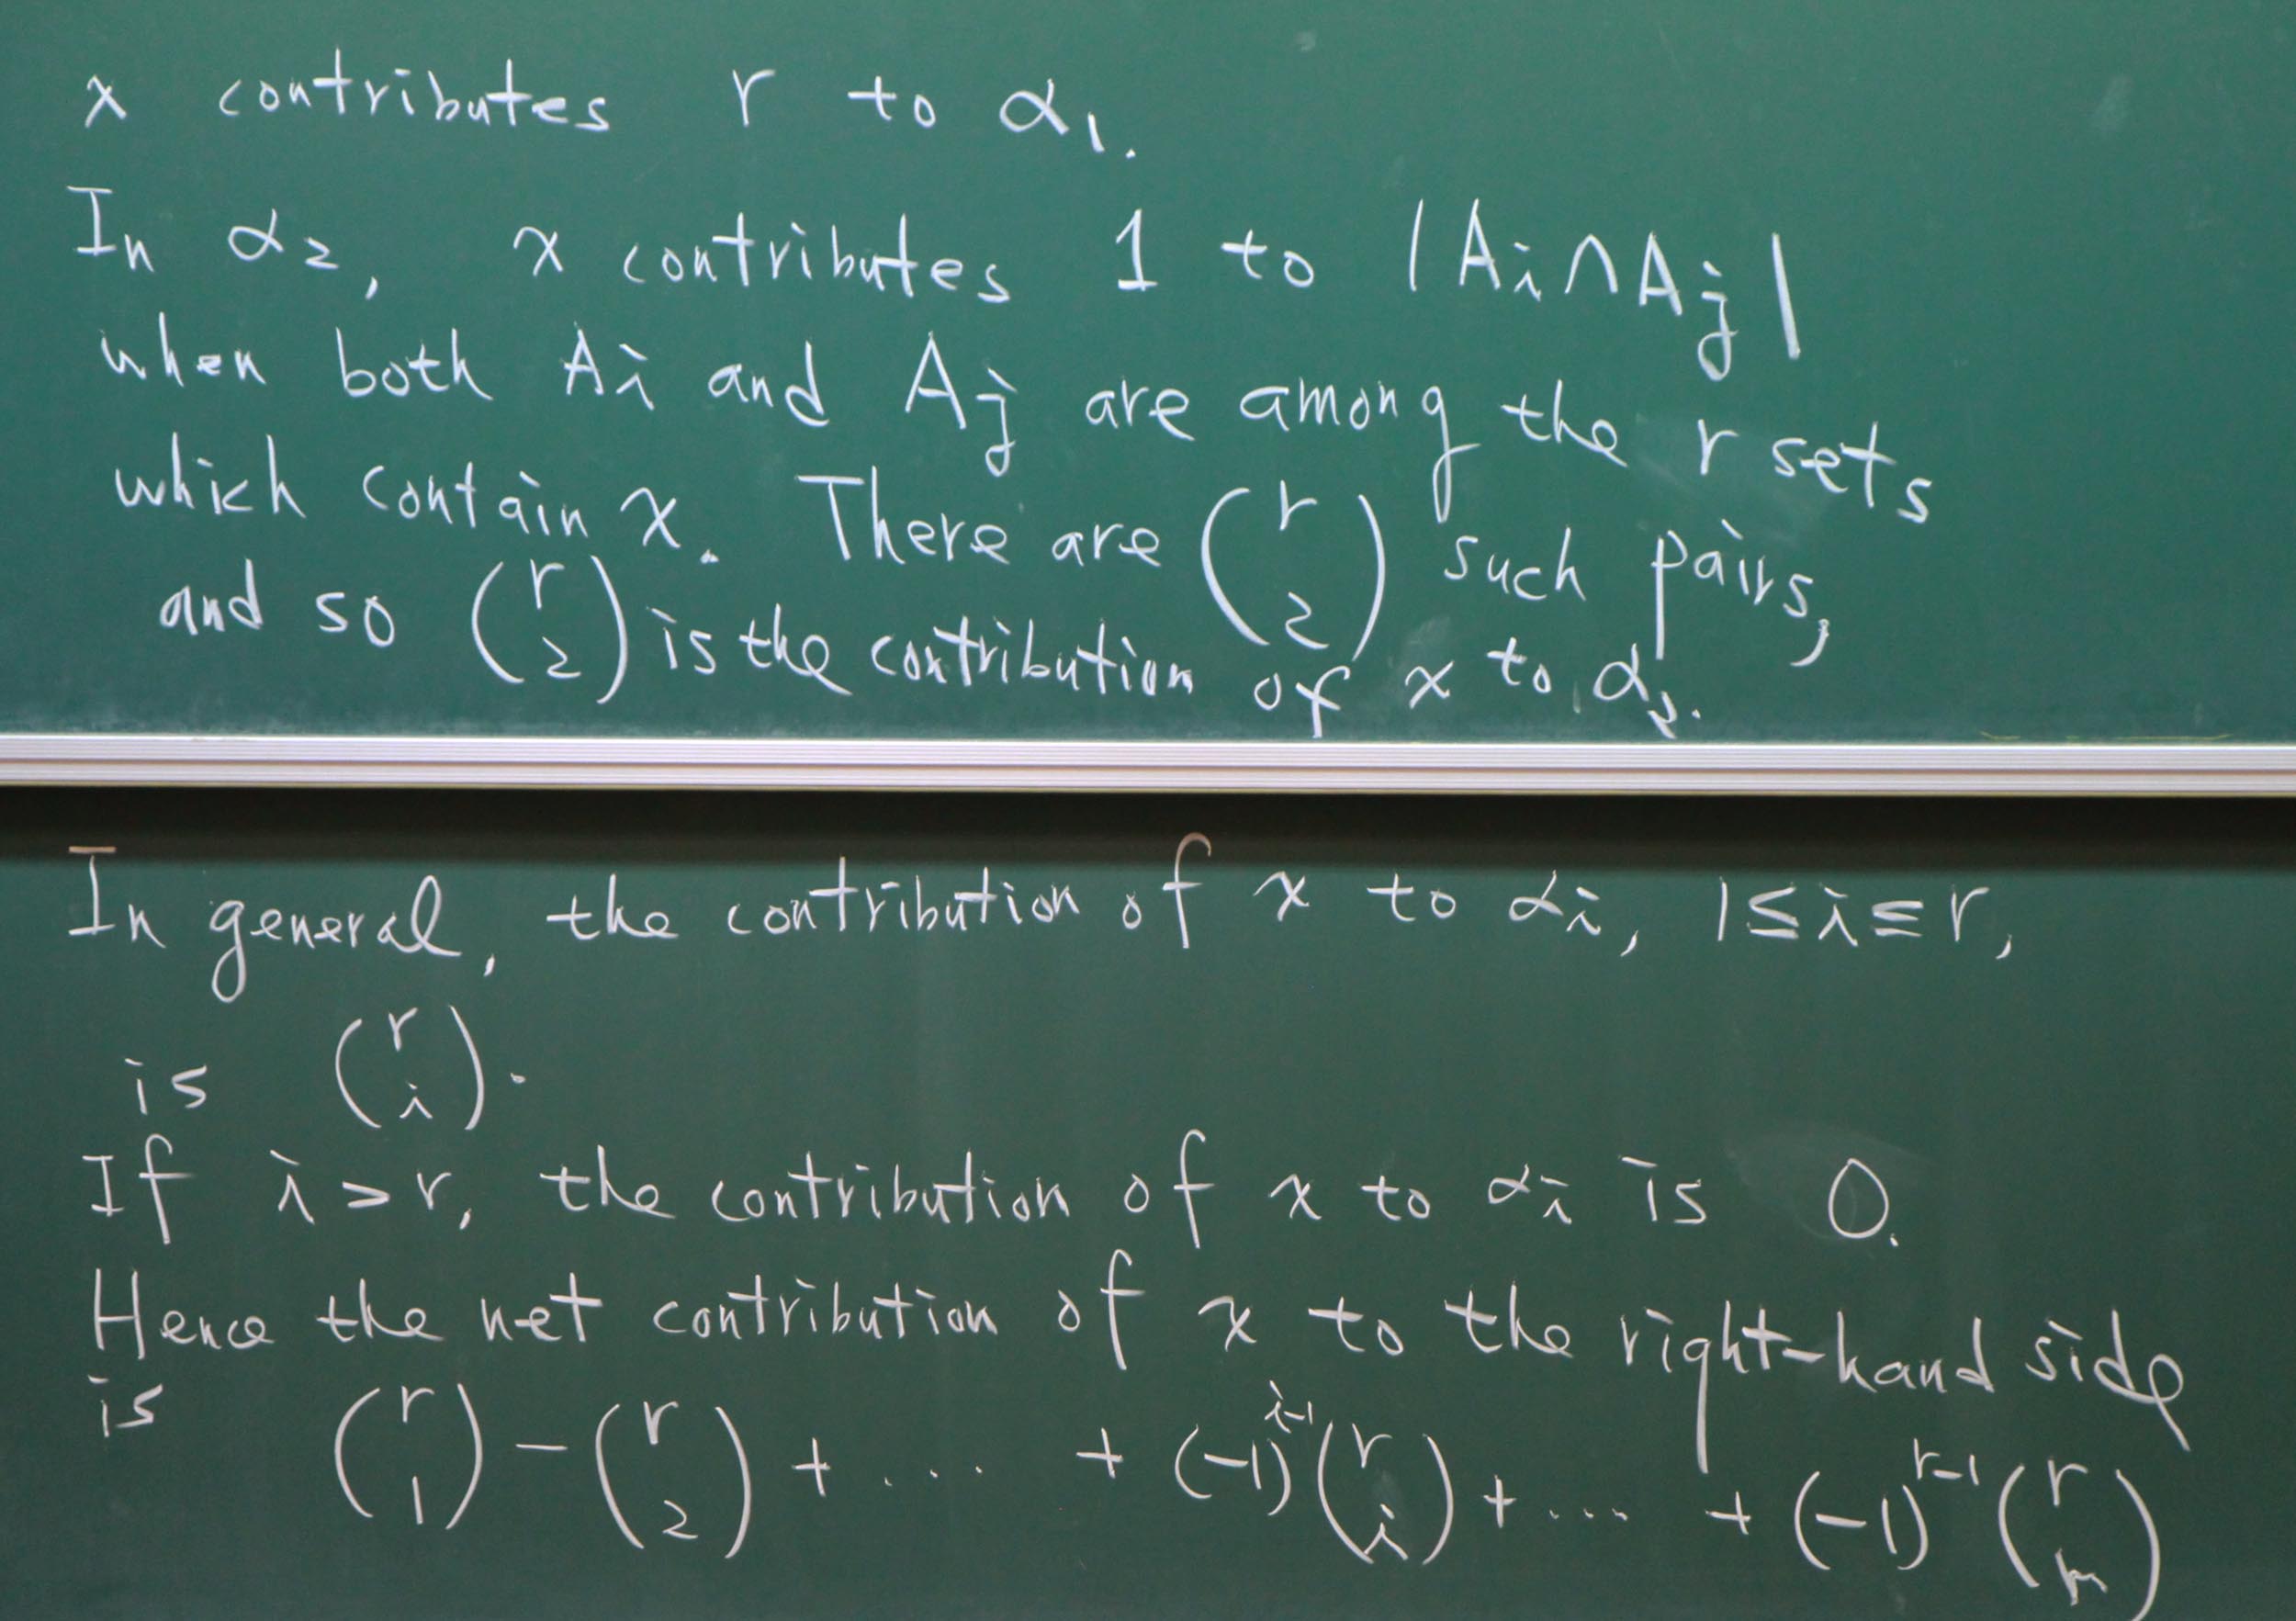 x contributes r to α₁.
In α₂, x contributes 1 to |Aᵢ∩Aⱼ|
when both Aᵢ and Aⱼ are among the r sets
which contain x. There are (r 2) such pairs,
and so (r 2) is the contribution of x to α₂.
In general, the contribution of x to αᵢ, 1≤i≤r,
is (r i).
If i>r, the contribution of x to αᵢ is 0.
Hence the net contribution of x to the right-hand side
is (r 1) - (r 2) + .... + (-1)^{i-1} (r i) + .... + (-1)^{r-1} (r r)